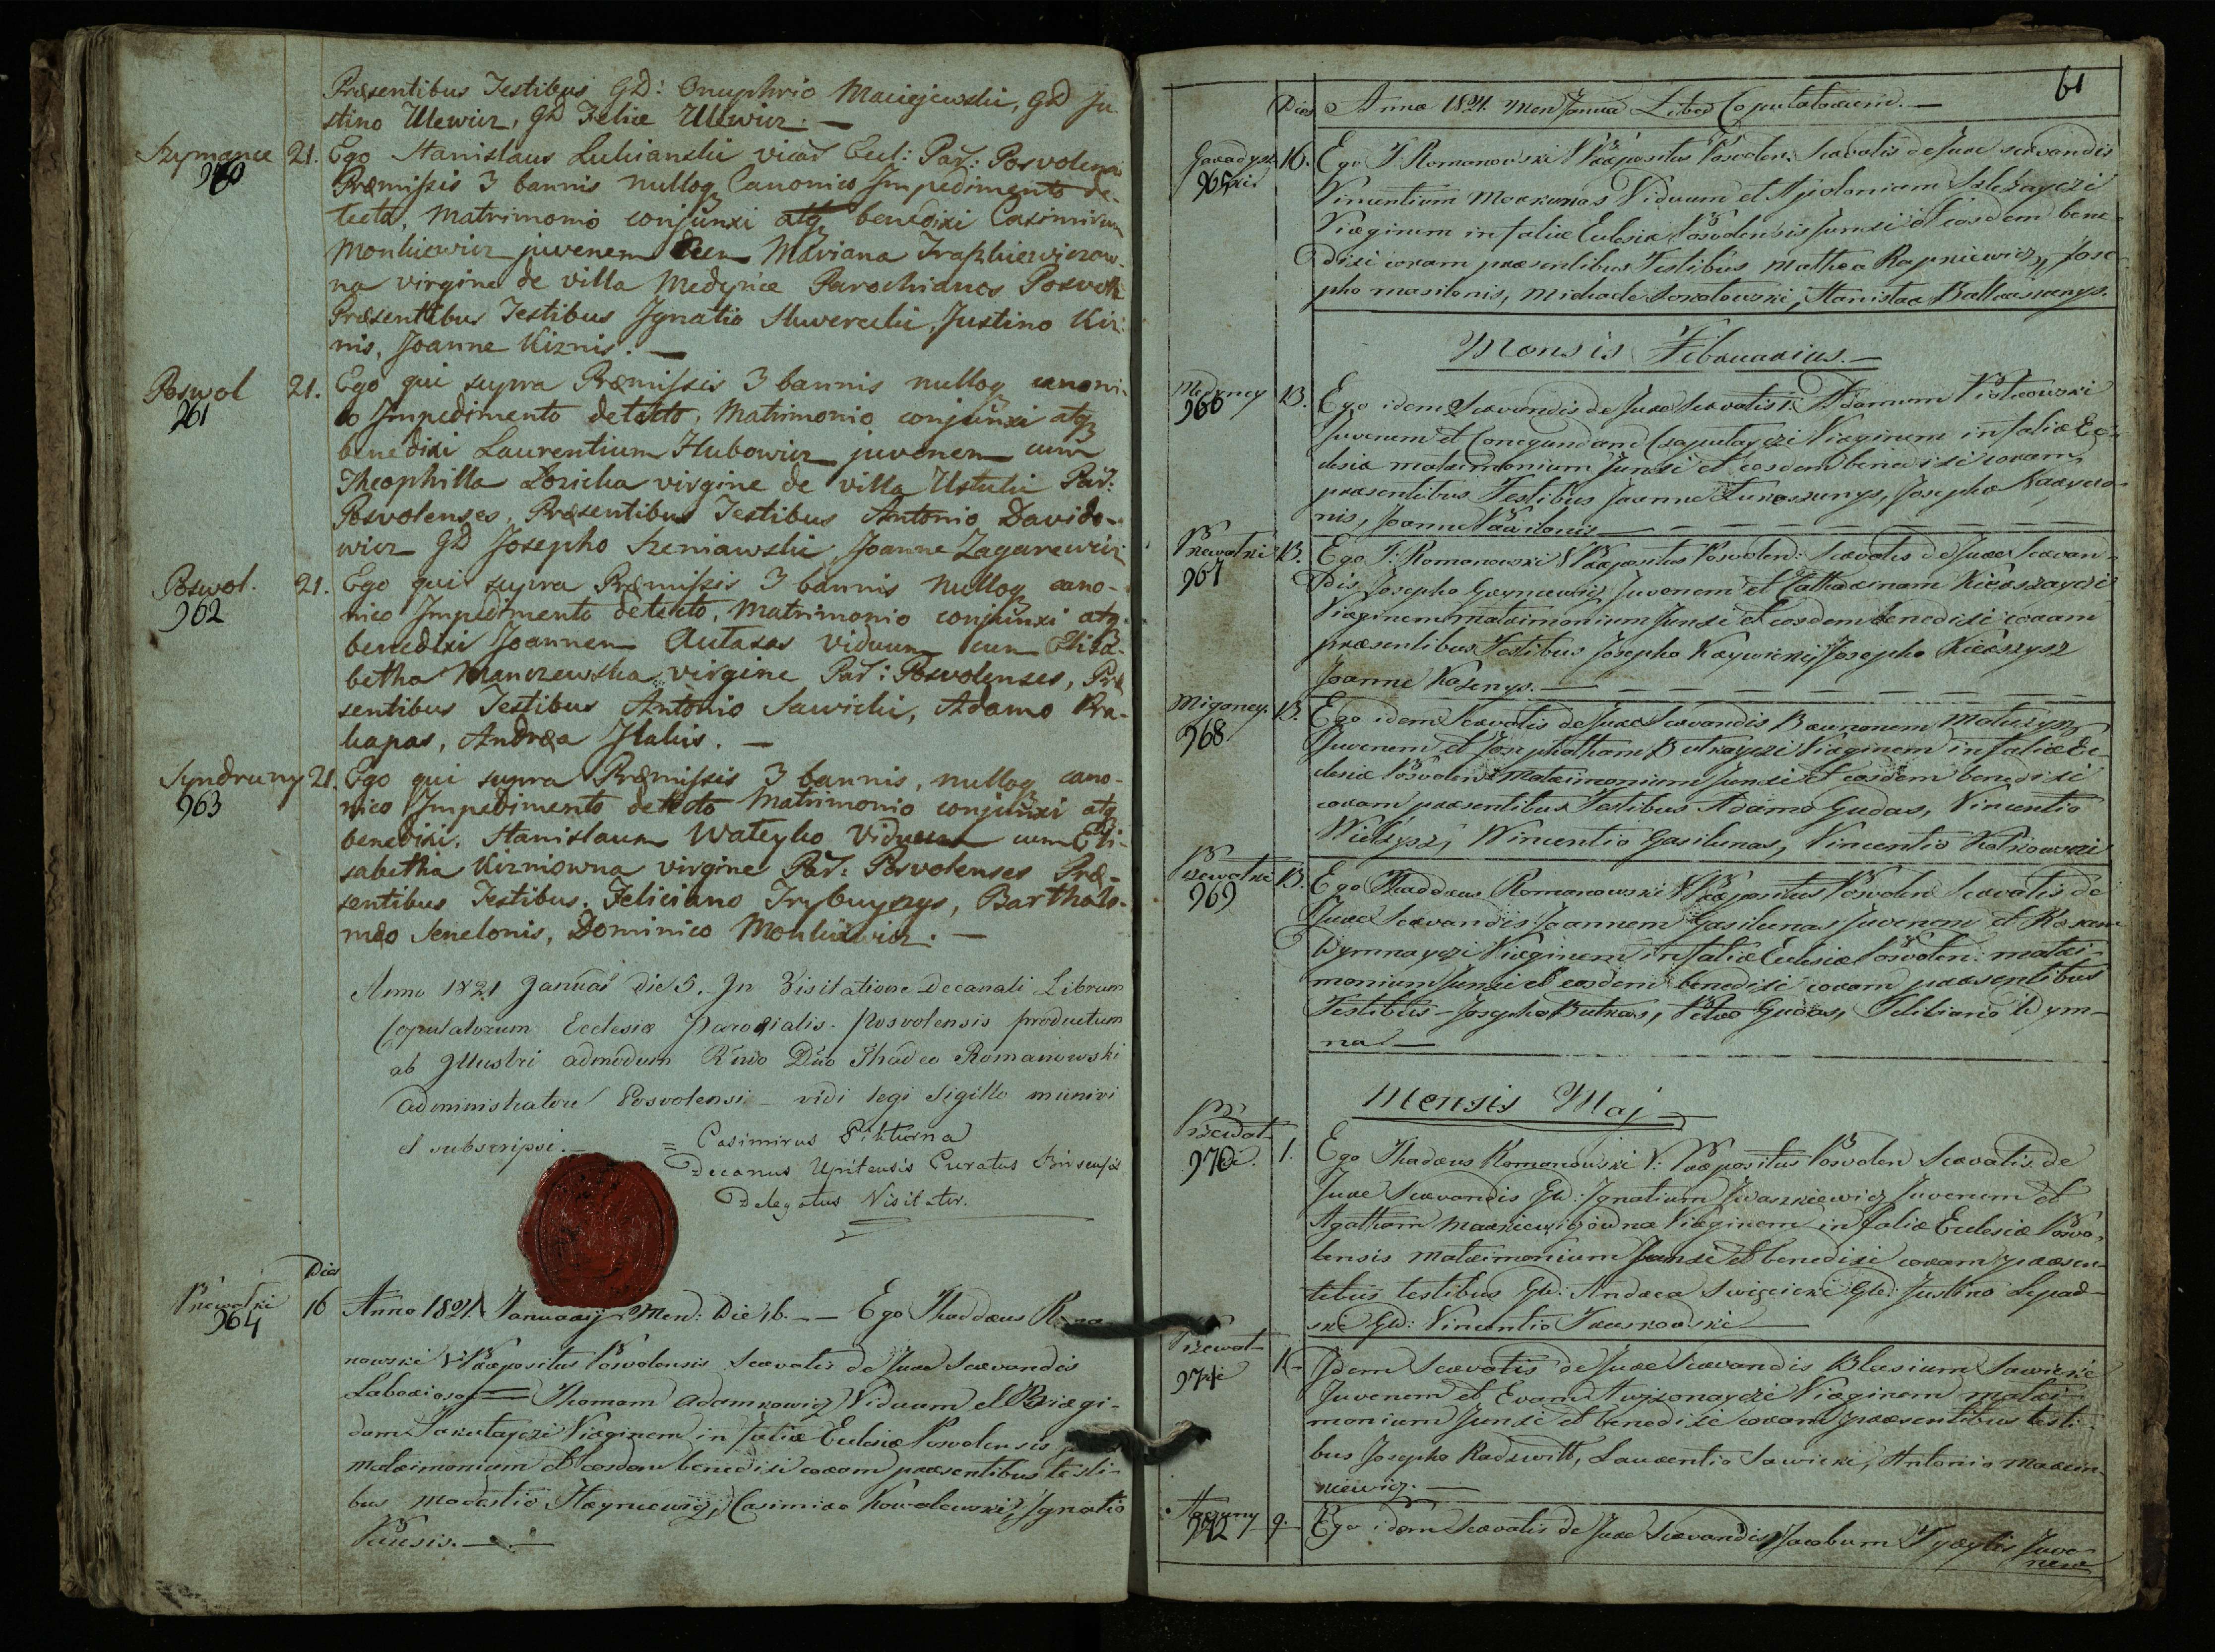 Præsentibus Testibus GD: Onuphrio Maciejewski, GD Ju-
stino Ulewicz, GD Felice Ulewicz. —
Szymance 21. Ego Stanislaus Lukianski vicar Eccl: Par: Posvolen
960 Præmissis 3 bannis nulloq Canonico Impedimento de-
tecto, Matrimonio conjunxi atq benedixi Casimirum
Monkiewicz juvenem cum Mariana Traszkiewiczow-
na virgine de villa Medynce Parochianos Posvol:
Præsentibus Testibus Ignatio Skwerecki, Justino Kiz-
nis, Joanne Kiznis. —
Poswol 21. Ego qui supra Præmissis 3 bannis nulloq canoni-
961 co Impedimento detecto, Matrimonio conjunxi atq
benedixi Laurentium Hubowicz juvenem cum
Theophilla Lozicka virgine de villa Ustuki Par:
Posvolenses, Præsentibus Testibus Antonio Davido-
wicz GD Josepho Szeniawski, Joanne Zagarewicz
Poswol. 21. Ego qui supra Præmissis 3 bannis nulloq cano-
962 nico Impedimento detecto, Matrimonio conjunxi atq
benedixi Joannem Autasas viduum cum Elisa-
betha Manczewska virgine Par: Posvolenses, Præ
sentibus Testibus Antonio Sawicki, Adamo Pra-
kapas, Andrea Jlakis. —
Syndruny 21. Ego qui supra Præmissis 3 bannis, nulloq cano-
963 nico Impedimento detecto Matrimonio conjunxi atq
benedixi, Stanislaum Wateyko Viduum cum Eli-
sabetha Kizniowna virgine Par: Posvolenses Præ-
sentibus Testibus, Feliciano Trybuyszys, Bartholo-
mæo Senelonis, Dominico Monkiewicz. —
Anno 1821 Januar die 5. In Visitatione Decanali Librum
Copulatorum Ecclesiæ Parocialis Posvolensis productum
ab Illustri admodum Rndo Dno Thadeo Romanowski
Administratore Posvolensi — vidi legi Sigillo munivi
et subscripsi. — = Casimirus Pikturna
Decanus Upitensis Curatus Birsensis
Delegatus Visitator.
Dies
Prewalki 16 Anno 1821 Januarij Men: Die 16. — — Ego Thaddæus Roma-
964
nowski V: Præpositus Posvolensis Servatis de Jure Servandis
Laboriosos Thomam Adamkowicz Viduum et Brigi-
dam Virginem in Talia Eclesiæ Posvolensis
matrimonium et eosdem benedixi coram præsentibus testi-
bus Modestio Casimiro Kowalewski, Ignatio
61
Dies Anno 1821. Men Januar Liber Copulatorum. —
16. Ego T: Romanowski V Præpositus Posvolen: Servatis de Jure servandis
965 Vincentium Markunas Viduum et Apoloniam
Virginem in Talia Eclesiæ Posvolensis Junxi et eosdem bene-
dixi coram præsentibus Testibus Matheo Rapkiewicz, Jose-
pho Masilonis, Michaele Sokolowski, Stanislao
Mensis Februarius. —
Medyncy 13. Ego idem Servandis de Jure Servatis Adamum Piotrowski
966 Juvenem et Conegundam Czaputayczi Virginem in Talia Ec-
clesia matrimonium Junxi et eosdem benedixi coram
præsentibus Testibus Joanne Lukoszunys, Josepho
nis, Joanne
Prewalki 13. Ego T: Romanowski V Præpositus Posvolen: Servatis de Jure Servan-
967 dis Josepho Juvenem et Catharinam
Virginem matrimonium Junxi et eosdem benedixi coram
præsentibus Testibus Josepho Kaywicki, Josepho
Joanne Kazenys. —
Migoncy. 13. Ego idem Servatis de Jure Servandis Matuzys
968 Juvenem et Josephatham Butkayczi Virginem in Talia Ec-
clesiæ Posvolens matrimonium Junxi et eosdem benedixi
coram præsentibus Testibus Adamo Gudas, Vincentio
Vincentio Gasilunas, Vincentio
Prewalki 13. Ego Thaddæus Romanowski V Præpositus Posvolen Servatis de
969 Jure Servandis Joannem Gasilunas Juvenem et
Dymnayczi Virginem in Talia Eclesiæ Posvolen: matri-
monium Junxi et eosdem benedixi coram præsentibus
Testibus — Josepho Butkas, Petro Gudas, Feliciano Dym-
na —
Mensis Maj
1. Ego Thadæus Romanowski V: Præpositus Posvolen Servatis de
970 Jure Servandis GD: Ignatium Iwaszkiewicz Juvenem et
Agatham Markiewiczowna Virginem in Talia Eclesiæ Posvo-
lensis matrimonium Junxi et benedixi coram præsen-
tibus testibus GD: Andrea Swięcicki GD: Justino
GD: Vincentio
971 Idem Servatis de Jure Servandis Blasium Sawicki
Juvenem et Evam Virginem matri-
monium Junxi et benedixi coram præsentibus testi-
bus Josepho Radzwill, Laurentio Sawicki, Antonio Marcin-
kiewicz. —
972 9. Ego idem Servatis de Jure Servandis Jacobum Juve-
nem